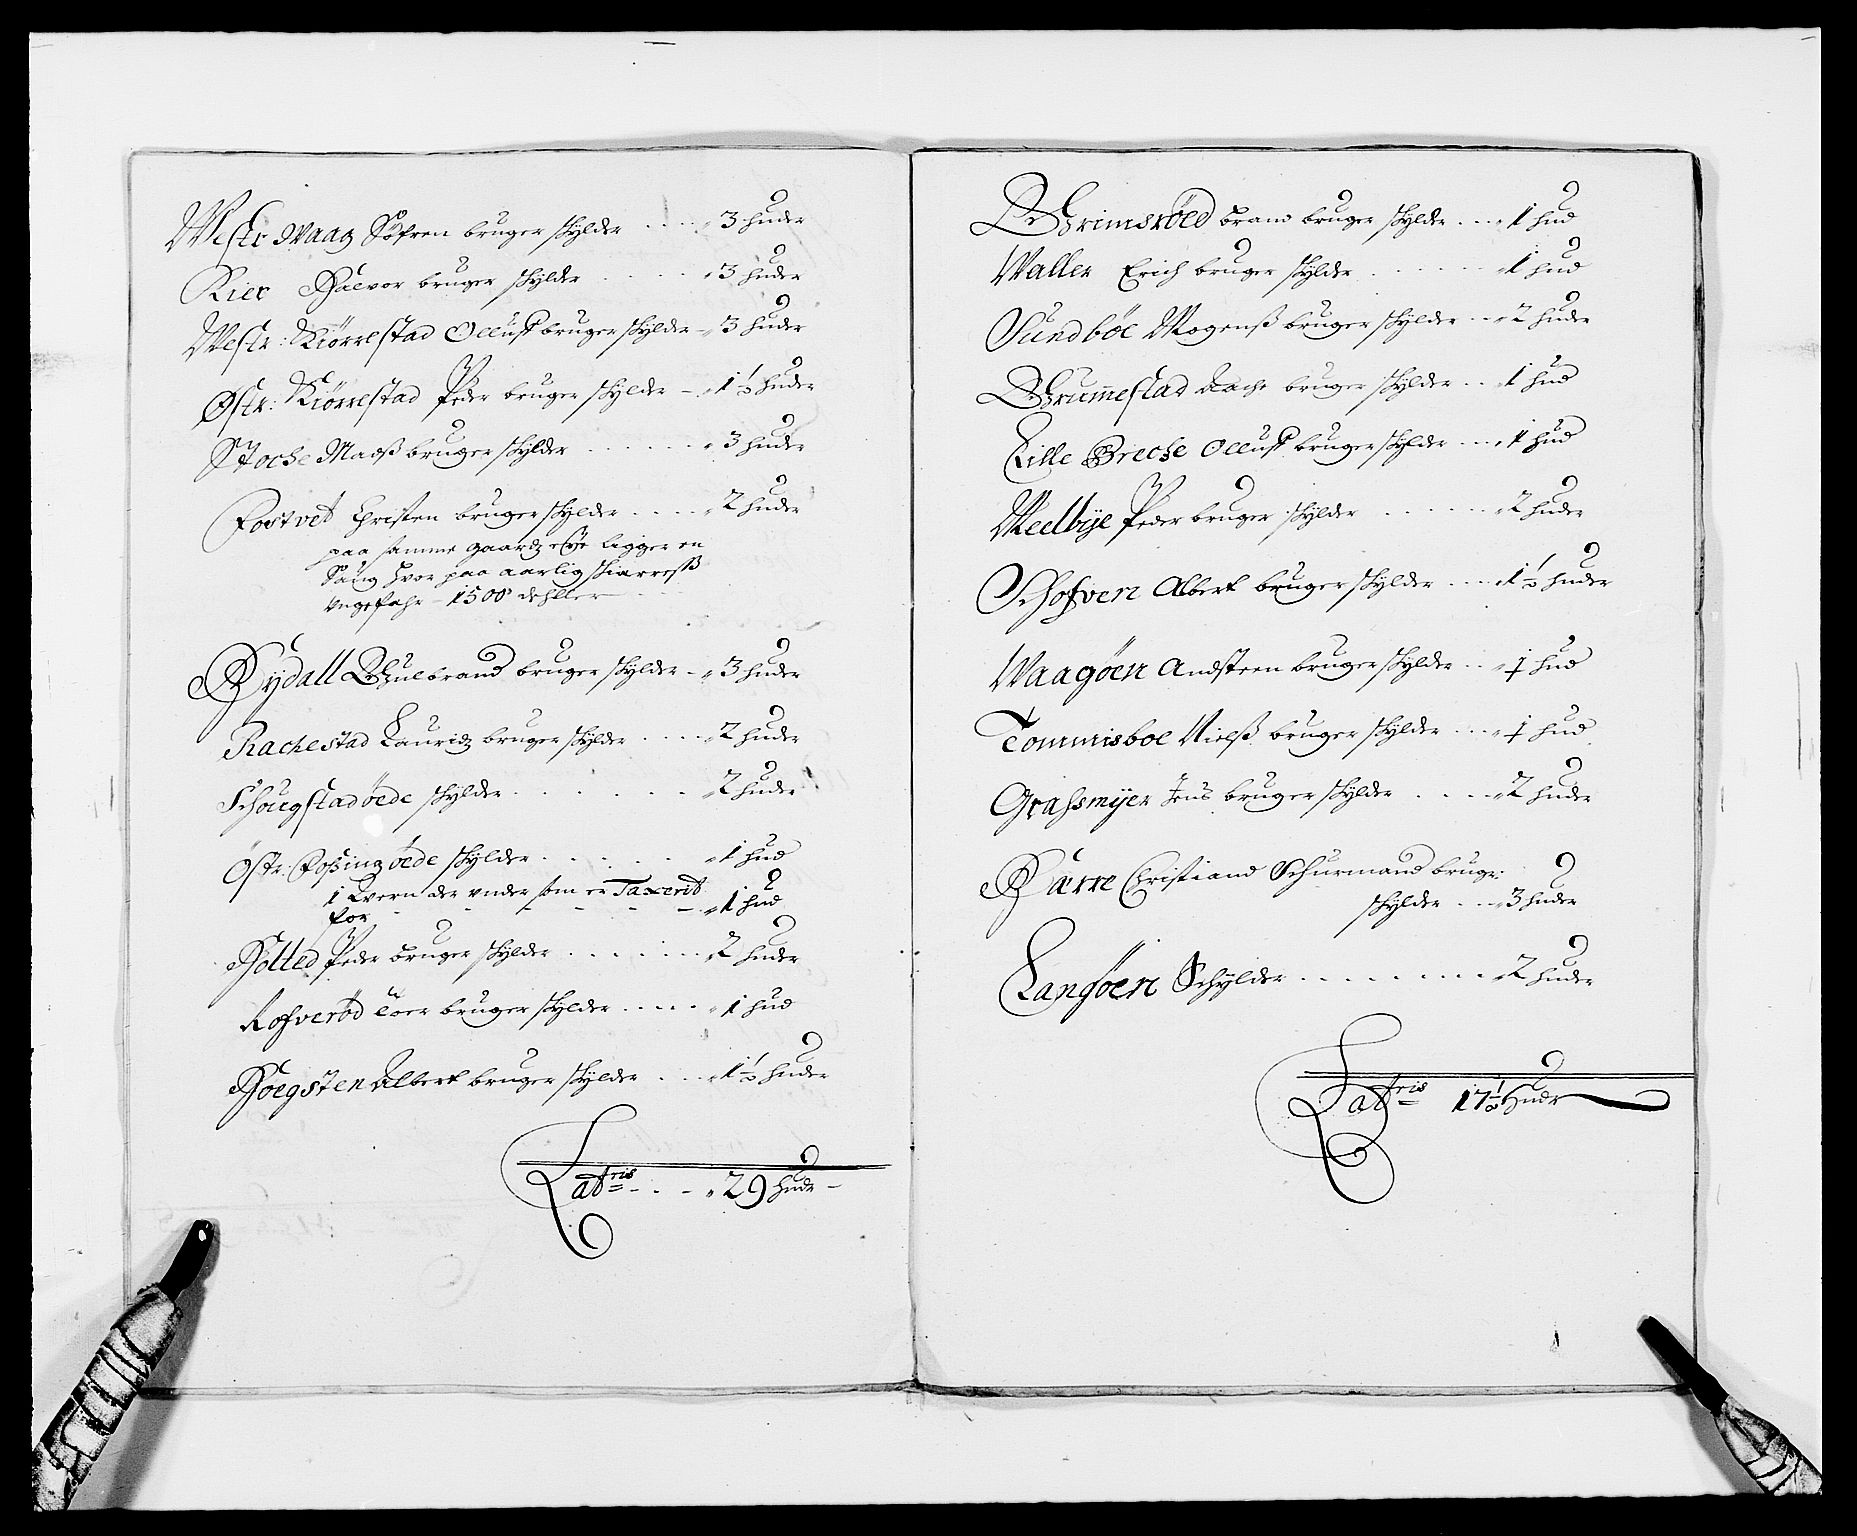 Westr Waag Söfren bruger skylder .... 3 huder
Kier Halvor bruger skylder .... 3 huder
Westr: Kiörrestad Olluff bruger skylder - 3 huder
Østr: Kiörrestad Peder bruger skylder - 1½ huder
Stoche Madß bruger skylder ..... 3 huder
Fostvet Christen bruger skylder .... 2 huder
paa samme gaardz eye ligger en
Saug hvor paa aarlig skiærreß
ungefahr - 1500 dehller
Rydall Gulbrand bruger skylder - 3 huder
Rachestad Lauridz bruger skylder .... 2 huder
Schougstad öede skylder ...... 2 huder
Östr: Foßing öede skylder ..... 1 hud
1 Kvern der under som er Taxerit
for - - - - - 1 hud
Holted Peder bruger skylder ...... 2 huder
Rofveröd Toer bruger skylder ..... 1 hud
Hoegsten Albert bruger skylder ... 1½ huder
Latris - . - 29 hudr -
Grimsröed Brand bruger skylder ... 1 hud
Waller Erich bruger skylder ...... 1 hud
Sundböe Mogenß bruger skylder ... 2 huder
Grummestad Aache bruger skylder .. 1 hud
Lille Breche Olluff bruger skylder ... 1 hud
Meelbye Peder bruger skylder ...... 2 huder
Schofven Albert bruger skylder .... 1½ huder
Waagöen Andsteen bruger skylder .. 1 hud
Tommisboe Nielß bruger skylder ... 1 hud
Grahsmyer Jens bruger skylder .... 2 huder
Harre Christiand Schurmand bruger:
skylder ... 3 huder
Langöen Schylder ........ 2 huder
Latris 17½ Hudr